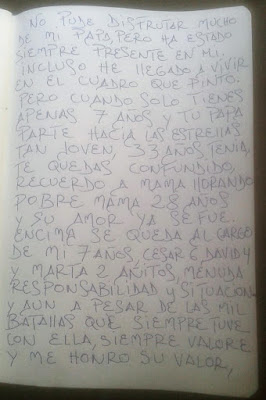 NO PUDE DISFRUTAR MUCHO
DE MI PAPA, PERO HA ESTADO
SIEMPRE PRESENTE EN MI.
INCLUSO HE LLEGADO A VIVIR
EN EL CUADRO QUE PINTO.
PERO CUANDO SOLO TIENES
APENAS 7 AÑOS Y TU PAPA
PARTE HACIA LAS ESTRELLAS
TAN JOVEN, 33 AÑOS TENIA,
TE QUEDAS CONFUNDIDO,
RECUERDO A MAMA LLORANDO
POBRE MAMA 28 AÑOS
Y SU AMOR YA SE FUE.
ENCIMA SE QUEDA AL CARGO
DE MI 7 AÑOS, CESAR 6, DAVID 4
Y MARTA 2 AÑITOS, MENUDA
RESPONSABILIDAD Y SITUACION
Y AUN A PESAR DE LAS MIL
BATALLAS QUE SIEMPRE TUVE
CON ELLA, SIEMPRE VALORE
Y ME HONRO SU VALOR,